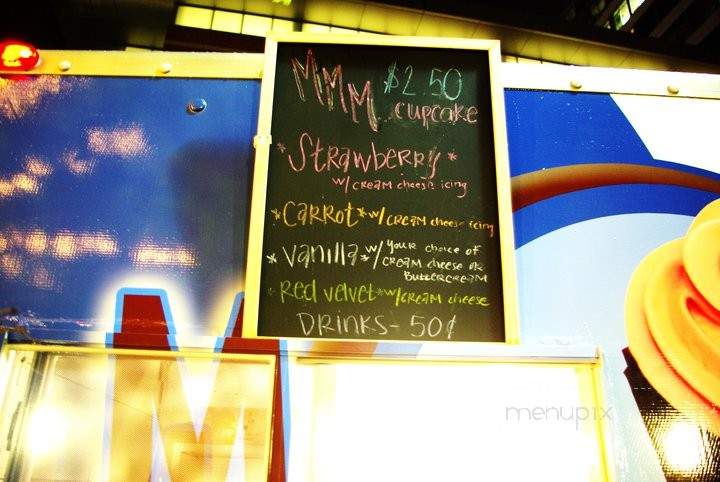 MMM $2.50
cupcake
*Strawberry*
w/cream cheese icing
*Carrot*w/cream cheese icing
*Vanilla*w/ your choice of
cream cheese or
Buttercream
*Red velvet*w/cream cheese
Drinks- 50¢
M
menupix